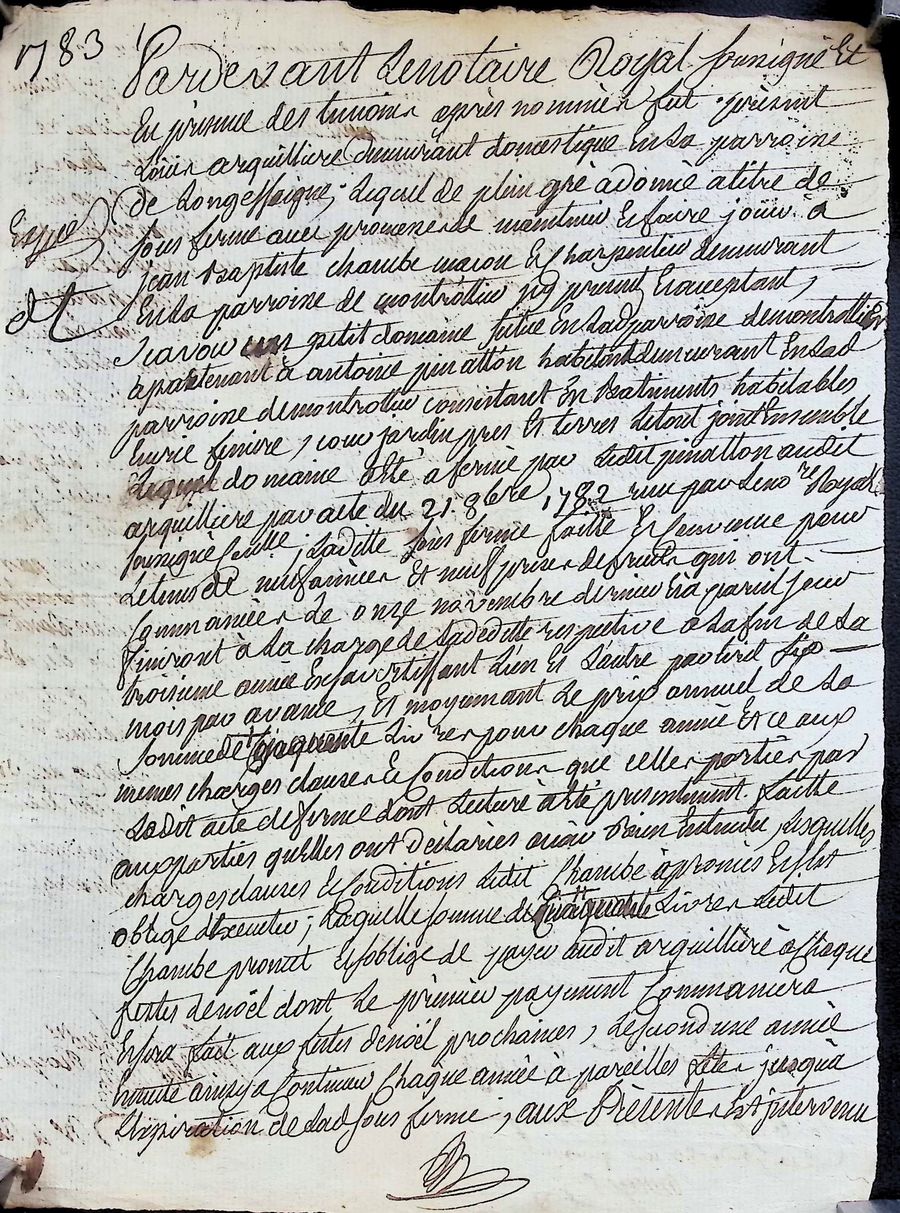 1783
Pardevant Le notaire Royal soussigné Et
En présence des temoins après nommés fut présent
Louis arquilliere demeurant domestique En la parroisse
de Longessaigne, Lequel de plein gré a donné a titre de
Expé
sous ferme avec promesse de maintenir Et faire jouir a
jean Baptiste chambe maçon Et Charpentier demeurant
dt
En la parroisse de montrottier icy present Et acceptant,
Scavoir un petit domaine situé En lad parroisse de montrottier
apartenant à antoine pinatton habitant demeurant En lad
parroisse de montrottier consistant En Batiments habitables
Curie feniere, cour jardin pres Et terres Le tout joint Ensemble
Lequel domaine a été afermé par Ledit pinatton audit
arquilliere par acte du 21. 8bre 1782 reçu par Le nore Royal
soussigné ; Laditte sous ferme faitte Et Convenue pour
Le tems de neuf années Et neuf prises de fruits qui ont
Commancées Le onze novembre dernier Et à pareil jour
finiront à La charge de La deditte respective a La fin de La
troisieme année En s'avertissant L'un Et L'autre par Ecrit six
mois par avance, Et moyennant Le prix annuel de La
somme de Cinquante Livres pour chaque année Et ce aux
memes charges clauses Et Conditions que celles portées par
Ledit acte de ferme dont Lecture a été presentement faitte
aux parties qu'elles ont declarées avoir Bien Entendu, Lesquelles
charges clauses Et Conditions Ledit Chambe a promis Et s'est
obligé d'Executer ; Laquelle somme de Cinquante Livres Ledit
Chambe promet Et s'oblige de payer audit arquilliere a Chaque
festes de noël dont Le premier payement Commancera
Et sera fait aux festes de noël prochaines, Le second une année
Ensuite ainsy a Continuer Chaque année à pareilles fetes jusqu'a
L'Expiration de lad sous ferme, aux Présentes Est intervenu